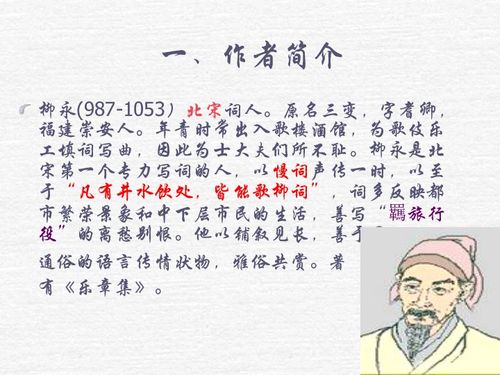 一、作者简介
柳永(987-1053）北宋词人。原名三变，字耆卿，
福建崇安人。年青时常出入歌楼酒馆，为歌伎乐
工填词写曲，因此为士大夫们所不耻。柳永是北
宋第一个专力写词的人，以慢词声传一时，以至
于“凡有井水饮处，皆能歌柳词”，词多反映都
市繁荣景象和中下层市民的生活，善写“羁旅行
役”的离愁别恨。他以铺叙见长，善于
通俗的语言传情状物，雅俗共赏。著
有《乐章集》。